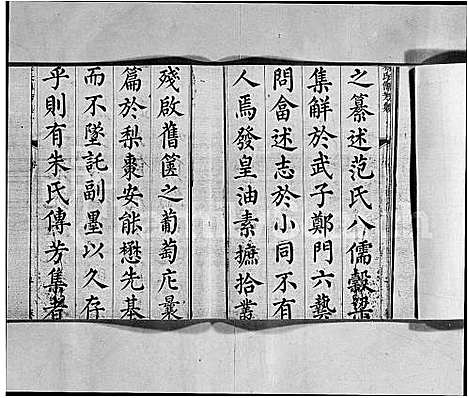 之纂述范氏八儒穀梁
集解於武子鄭門六藝
問畣述志於小同不有
人焉發皇油素摭拾叢
殘啟舊篋之葡萄庀彙
篇於梨棗安能懋先基
而不墜託副墨以久存
乎則有朱氏傳芳集者